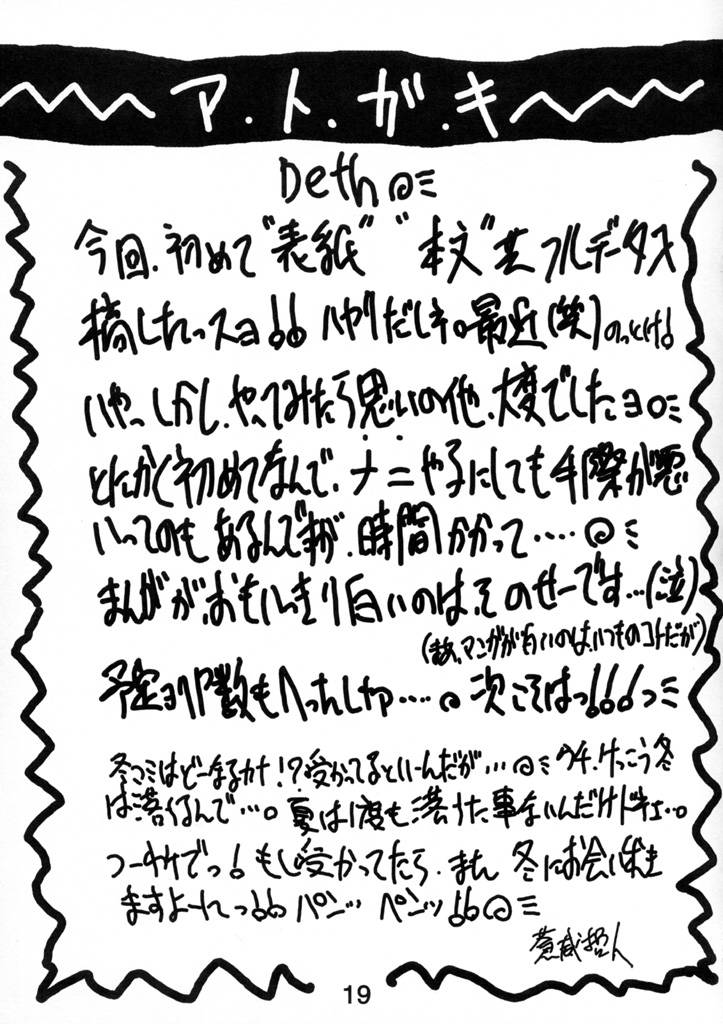 ア.ト.ガ.キ
Deth
今回、初めて"表紙""本文"共フルデータ入
稿したっスョ!! ハヤリだしネ。最近(笑)のっとけ!
いやっ、しかし、やってみたら思いの他、大変でしたョ。
とにかく初めてなんで、ナニやるにしても手際が悪
いってのもあるんですが、時間かかって‥‥
まんがが、おもいっきり白いのは、そのせーです…(泣)
(まあ、マンガが白いのは、いつものコトだが)
予定ョリP数もへっちゃしゃっ‥‥。次こそはっ!!!っ
冬コミはどーなるカナ!?受かってるといーんだが…ウチ、けっこう冬
は落ちるんで…。夏は1度も、落ちた事ないんだけドネェ…。
つーわけでっ!もし受かってたら、また 冬にお会いしま
ますよーねっ!! パンッ ペンッ!!
蒼威哲人
19